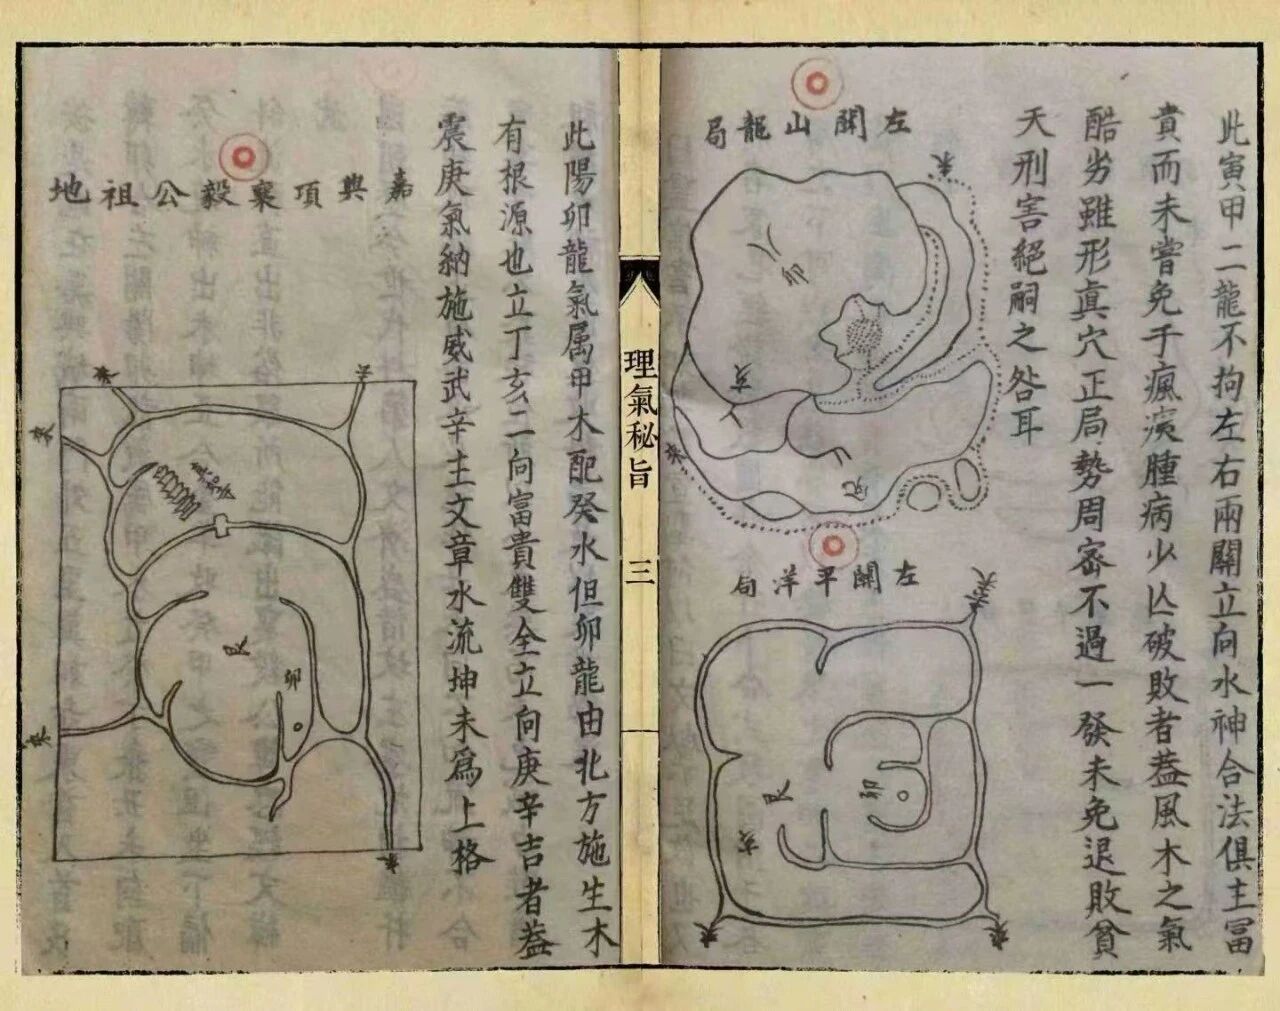 此寅甲二龍不拘左右兩關立向水神合法俱主冨
貴而未嘗免于瘋痰腫病少亾破敗者葢風木之氣
酷劣雖形眞穴正局勢周密不過一發未免退敗貧
天刑害絕嗣之咎耳
左關山龍局
來
卯
亥
來
兌
左關平洋局
艮
卯
亥
來
來
理氣秘旨
三
此陽卯龍氣属甲木配癸水但卯龍由北方施生木
有根源也立丁亥二向富貴雙全立向庚辛吉者葢
震庚氣納施威武辛主文章水流坤未爲上格
嘉興項襄毅公祖地
來
來
艮
卯
來
來